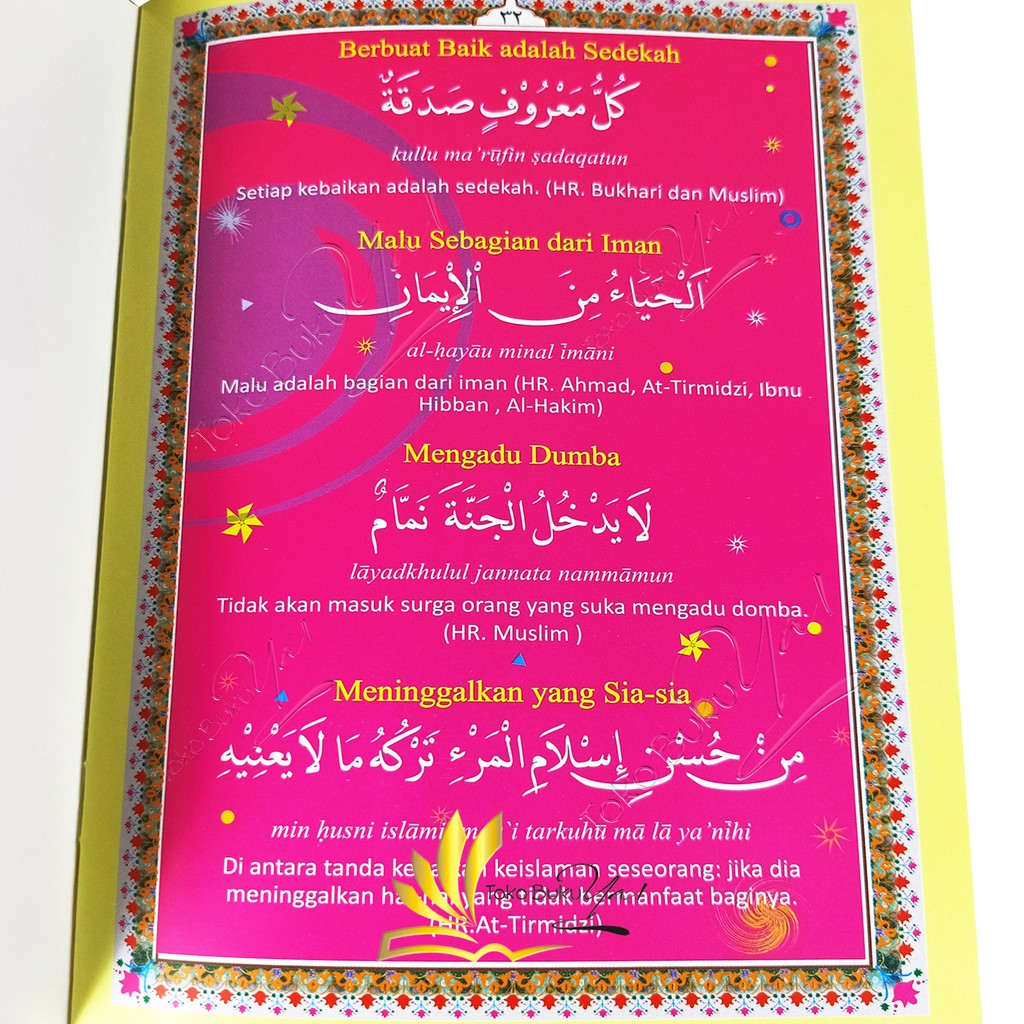 ٣٢
Berbuat Baik adalah Sedekah
كُلُّ مَعْرُوْفٍ صَدَقَةٌ
kullu ma'rūfin ṣadaqatun
Setiap kebaikan adalah sedekah. (HR. Bukhari dan Muslim)
Malu Sebagian dari Iman
اَلْحَيَاءُ مِنَ الْإِيْمَانِ
al-ḥayāu minal īmāni
Malu adalah bagian dari iman (HR. Ahmad, At-Tirmidzi, Ibnu
Hibban , Al-Hakim)
Mengadu Dumba
لَا يَدْخُلُ الْجَنَّةَ نَمَّامٌ
lāyadkhulul jannata nammāmun
Tidak akan masuk surga orang yang suka mengadu domba.
(HR. Muslim )
Meninggalkan yang Sia-sia
مِنْ حُسْنِ إِسْلَامِ الْمَرْءِ تَرْكُهُ مَا لَا يَعْنِيْهِ
min ḥusni islāmi tarkuhū mā lā ya'nīhi
Di antara tanda keislaman seseorang: jika dia
meninggalkan yang tidak bermanfaat baginya.
(HR.At-Tirmidzi)
Toko Buku